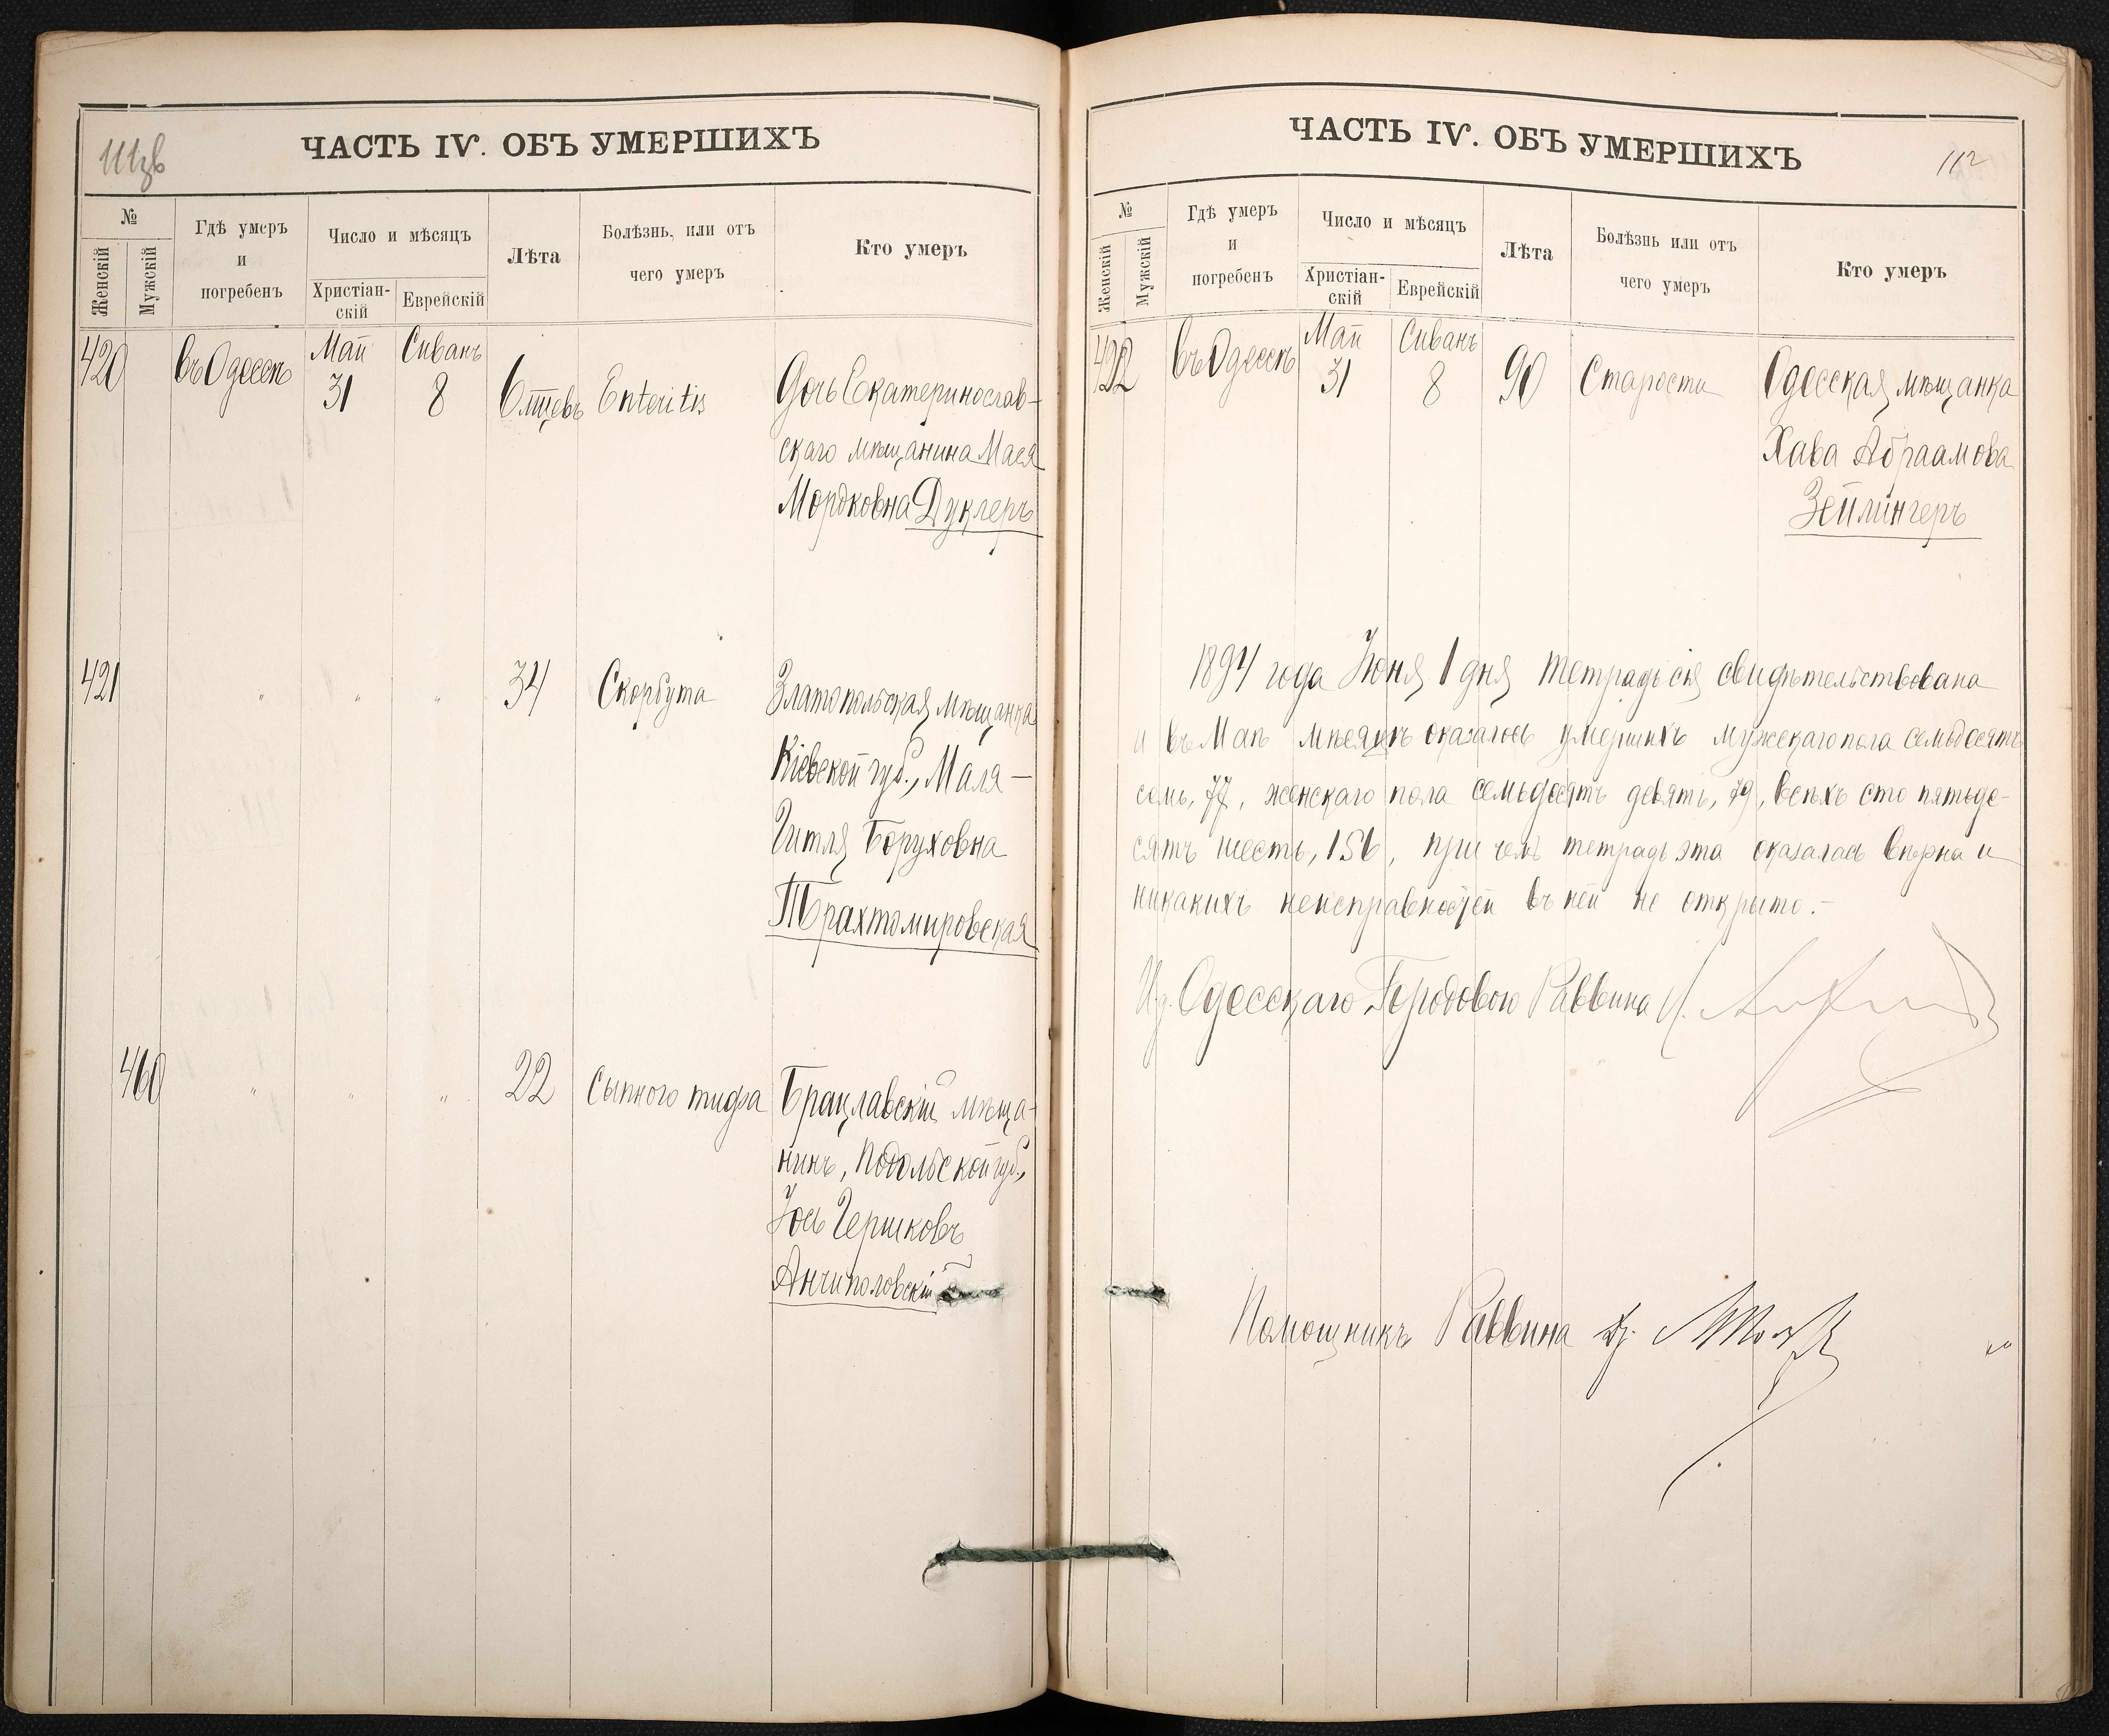 ЧАСТЬ IV. ОБЪ УМЕРШИХЪ
№
Женскій
Мужскій
Гдѣ умеръ
и
погребенъ
Число и мѣсяцъ
Христіан-
скій
Еврейскій
Лѣта
Болѣзнь, или отъ
чего умеръ
Кто умеръ
420
въ Одессѣ
Май
31
Сиванъ
8
6 мцевъ
Enteritis
Дочь Екатеринослав-
скаго мѣщанина Мася
Мордковна Дуклеръ
421
"
"
"
34
Скорбута
Златопольская мѣщанка
Кіевской губ., Маля-
Гитля Боруховна
Трахтомировская
460
"
"
"
22
Сыпного тифа
Брацлавскій мѣща-
нинъ, Подольской губ.,
Іось Гершковъ
Анчиполовскій
ЧАСТЬ IV. ОБЪ УМЕРШИХЪ
112
№
Женскій
Мужскій
Гдѣ умеръ
и
погребенъ
Число и мѣсяцъ
Христіан-
скій
Еврейскій
Лѣта
Болѣзнь или отъ
чего умеръ
Кто умеръ
422
въ Одессѣ
Май
31
Сиванъ
8
90
Старости
Одесская мѣщанка
Хава Абраамова
Зейлингеръ
1894 года Іюня 1 дня тетрадь сія свидѣтельствована
и въ Маѣ мѣсяцѣ оказалось умершихъ мужскаго пола семьдесятъ
семь, 77, женскаго пола семьдесятъ девять, 79, всѣхъ сто пятьде-
сятъ шесть, 156, при чемъ тетрадь эта оказалась вѣрна и
никакихъ неисправностей въ ней не открыто.-
И.д. Одесскаго Городового Раввина
Помощникъ Раввина